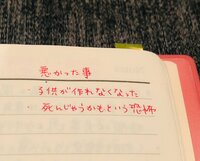 悪かった事
・子供が作れなくなった
・死んじゃうかもという恐怖